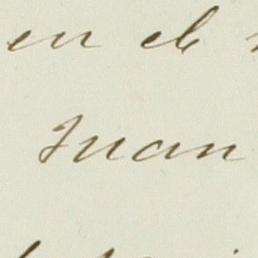 en el
Juan